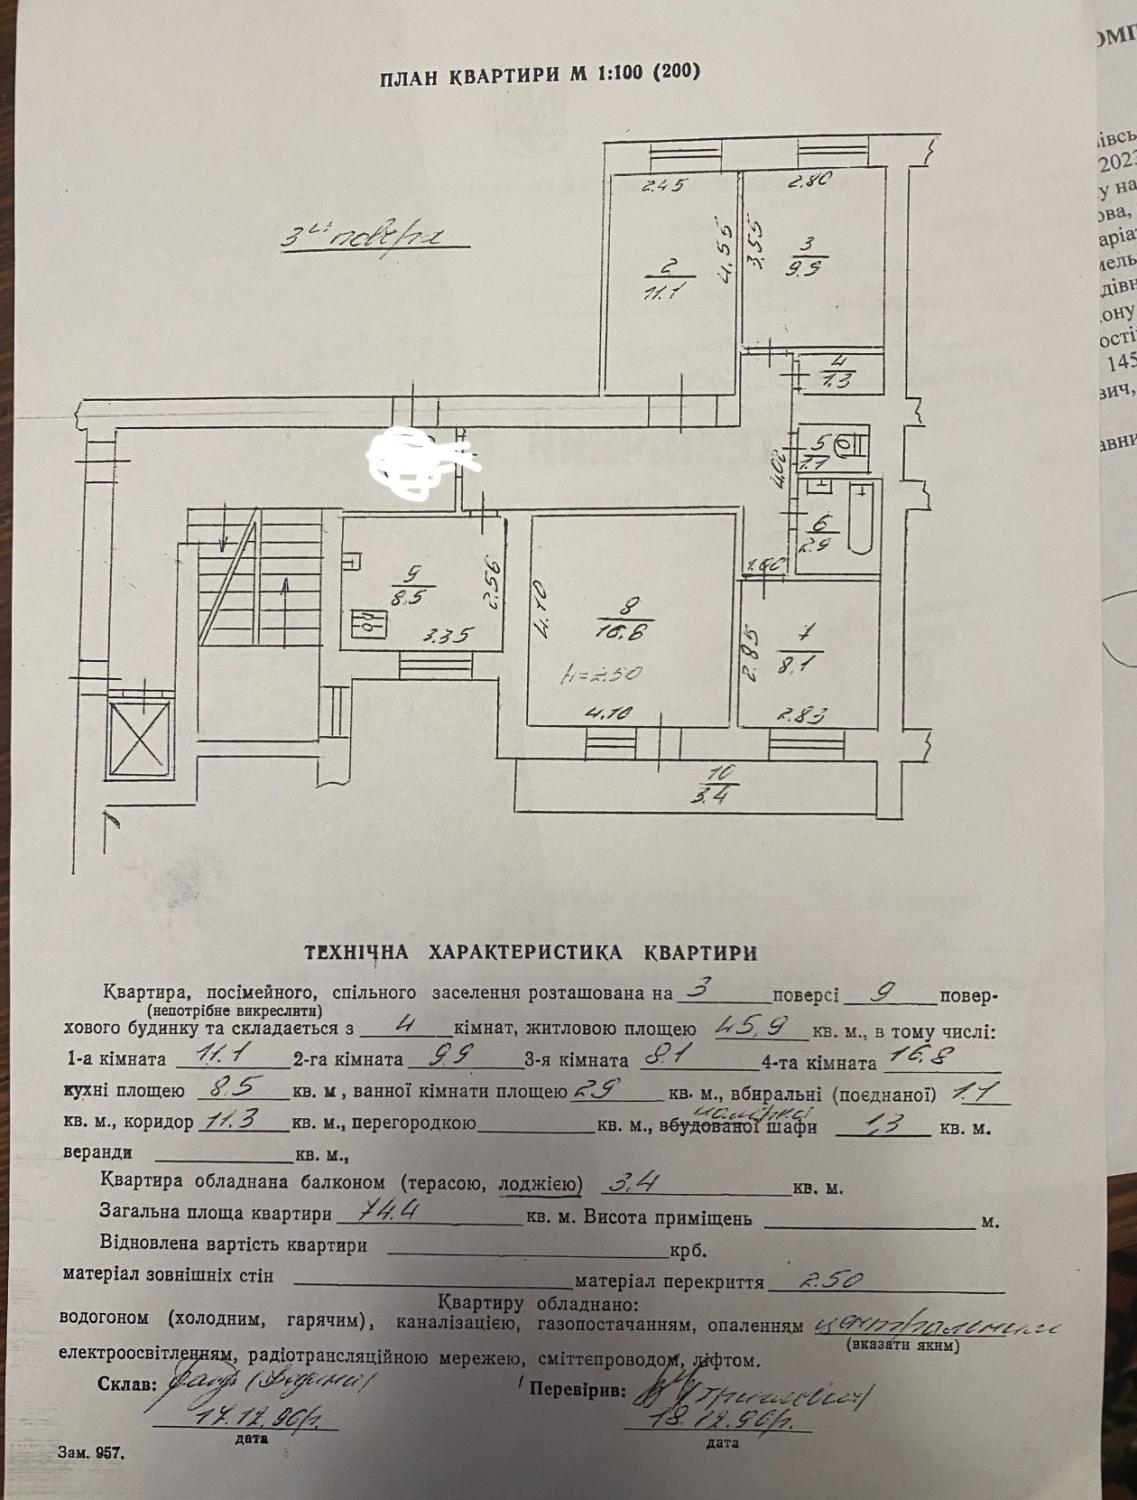 ПЛАН КВАРТИРИ М 1:100 (200)
3ий поверх
2.45
2.80
4.55
3.55
2
11.1
3
9.9
4
1.3
5
1.1
4.02
6
2.9
1.60
9
8.5
2.56
3.35
4.10
8
16.8
h=2.50
4.10
7
8.1
2.85
2.83
10
3.4
ТЕХНІЧНА ХАРАКТЕРИСТИКА КВАРТИРИ
Квартира, посімейного, спільного заселення розташована на 3 поверсі 9 повер-
(непотрібне викреслити)
хового будинку та складається з 4 кімнат, житловою площею 45,9 кв. м., в тому числі:
1-а кімната 11.1 2-га кімната 9.9 3-я кімната 8.1 4-та кімната 16.8
кухні площею 8.5 кв. м, ванної кімнати площею 2.9 кв. м., вбиральні (поєднаної) 1.1
кв. м., коридор 11.3 кв. м., перегородкою кв. м., вбудованої шафи 1,3 кв. м.
веранди кв. м.,
Квартира обладнана балконом (терасою, лоджією) 3.4 кв. м.
Загальна площа квартири 74.4 кв. м. Висота приміщень м.
Відновлена вартість квартири крб.
матеріал зовнішніх стін матеріал перекриття 2.50
Квартиру обладнано:
водогоном (холодним, гарячим), каналізацією, газопостачанням, опаленням центральним
(вказати яким)
електроосвітленням, радіотрансляційною мережею, сміттєпроводом, ліфтом.
Склав: Перевірив:
17.12.96р. 18.12.96р.
дата дата
Зам. 957.